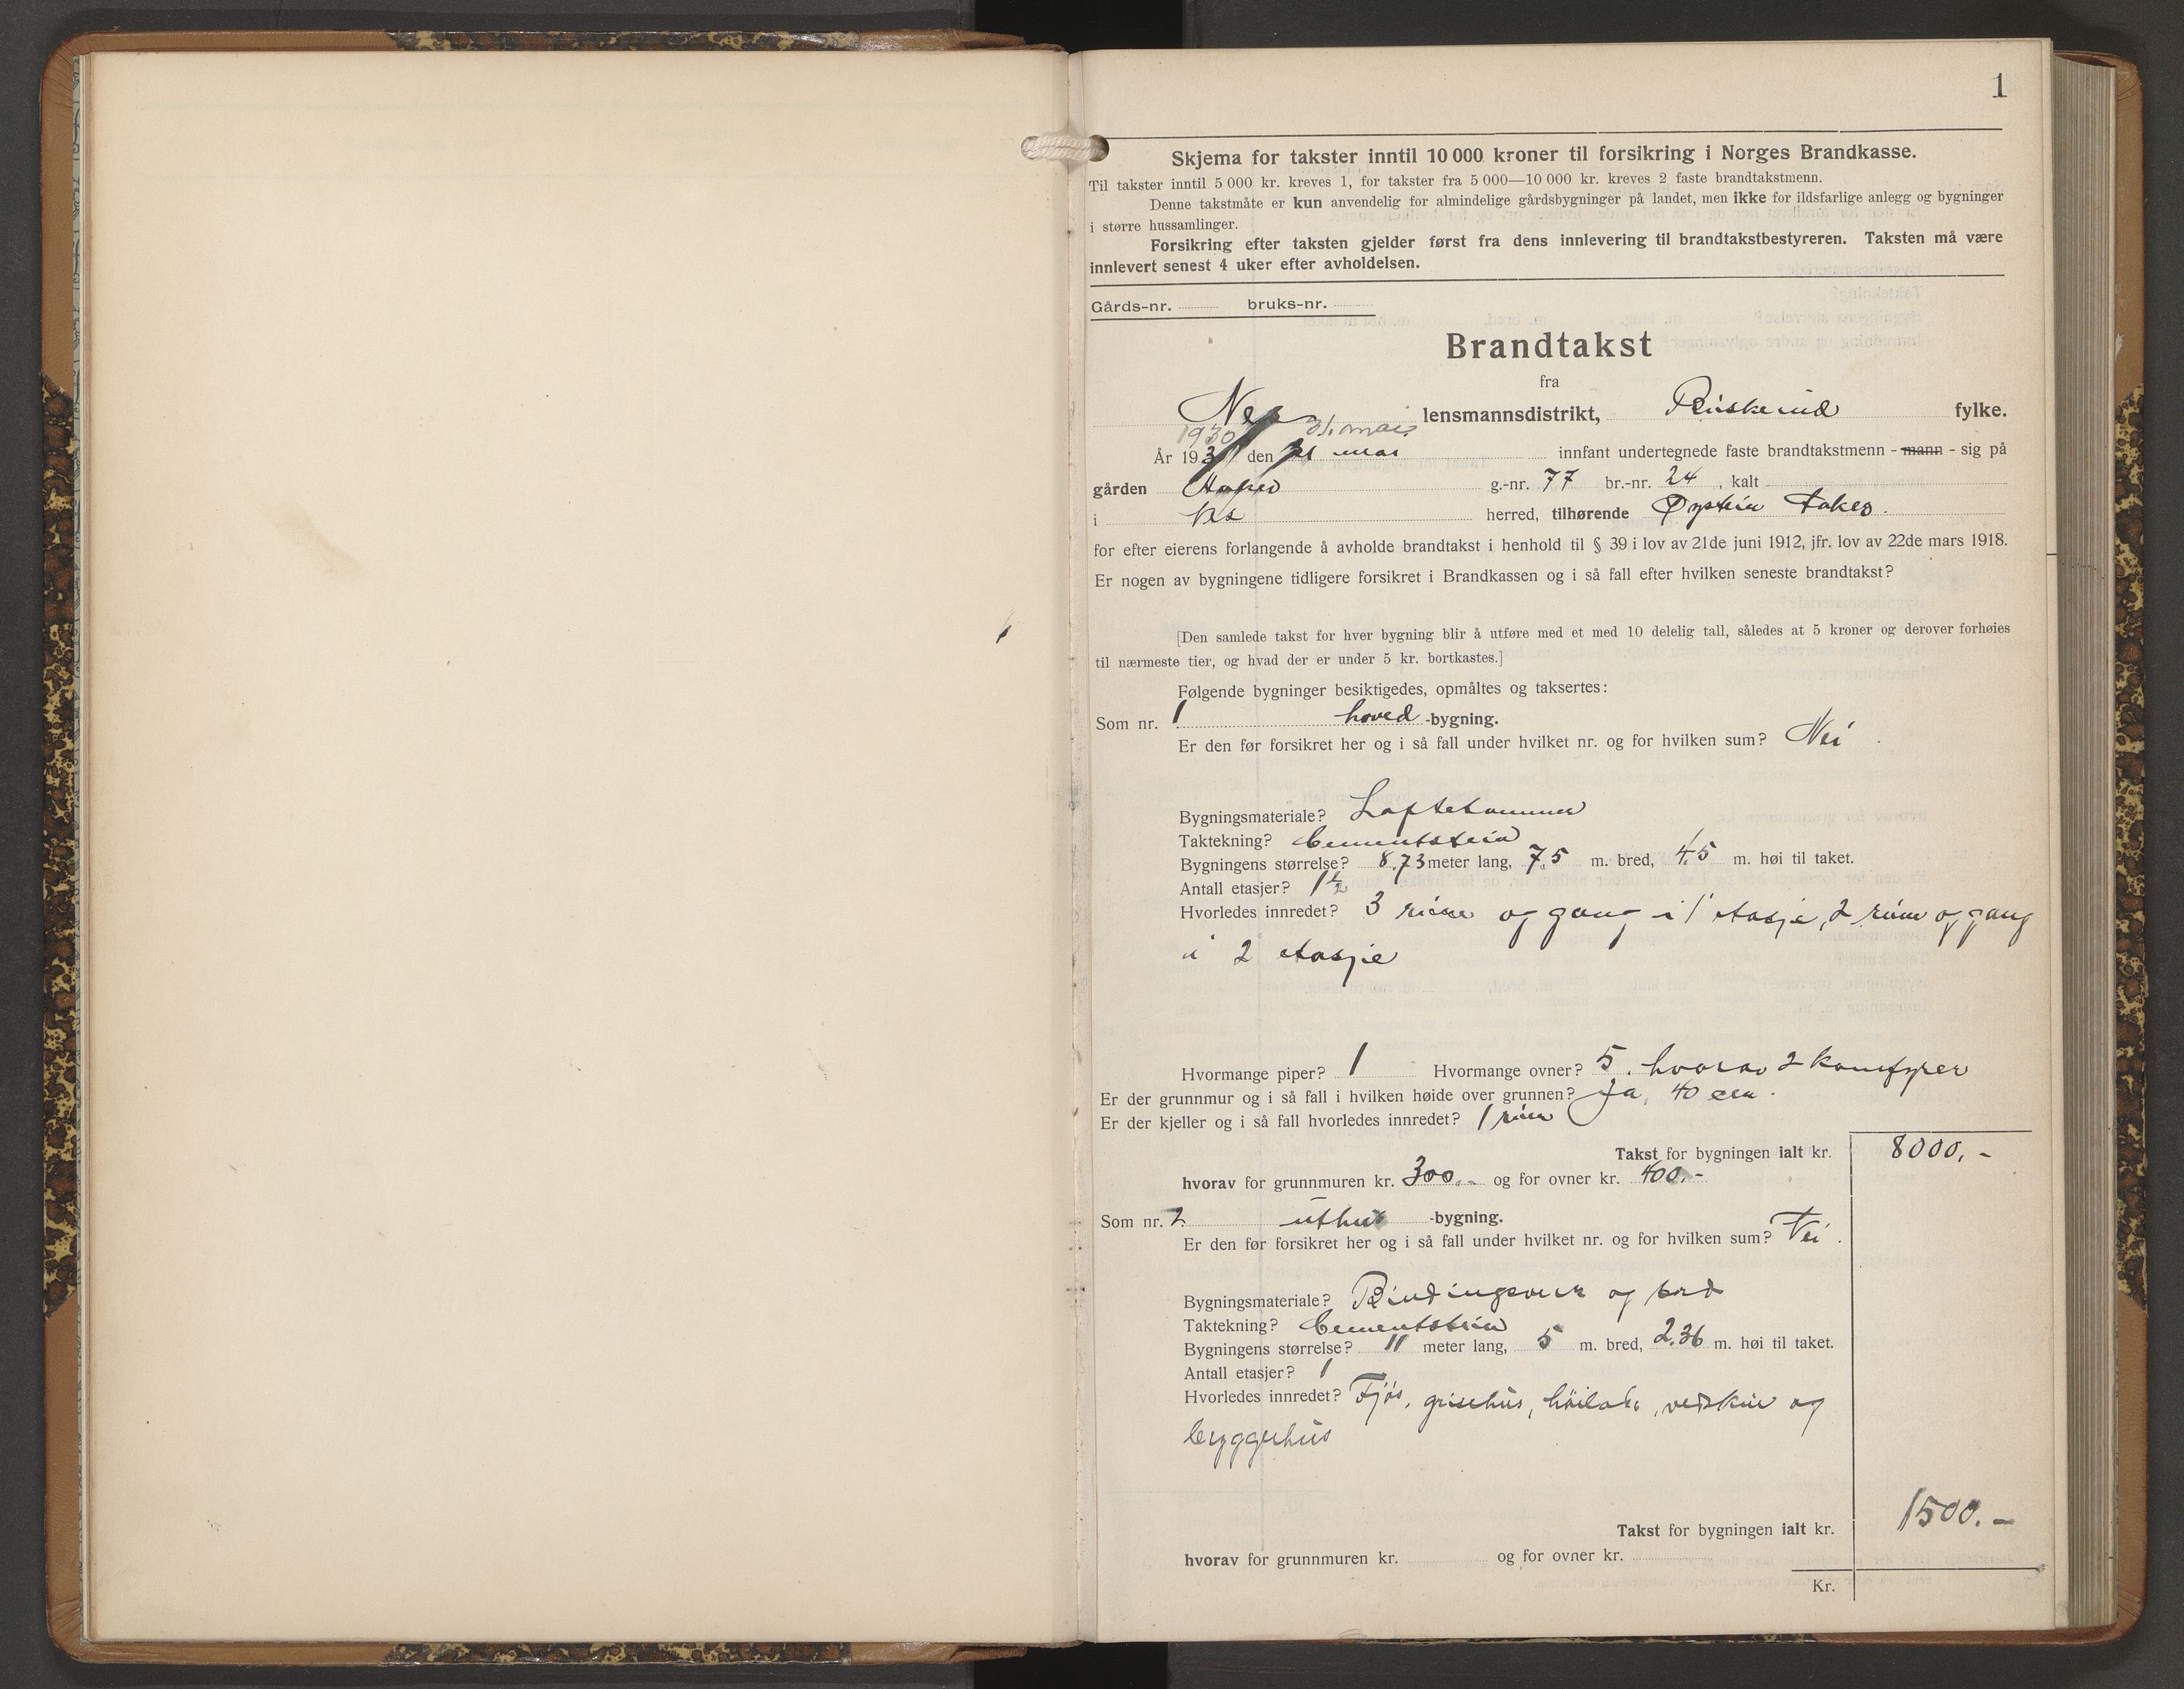 1
Skjema for takster inntil 10 000 kroner til forsikring i Norges Brandkasse.
Til takster inntil 5 000 kr. kreves 1, for takster fra 5 000—10 000 kr. kreves 2 faste brandtakstmenn.
Denne takstmåte er kun anvendelig for almindelige gårdsbygninger på landet, men ikke for ildsfarlige anlegg og bygninger
i større hussamlinger.
Forsikring efter taksten gjelder først fra dens innlevering til brandtakstbestyreren. Taksten må være
innlevert senest 4 uker efter avholdelsen.
Gårds-nr. bruks-nr.
Brandtakst
fra
Nes lensmannsdistrikt, Buskerud fylke.
1930 31. mai
År 193 den 31 mai innfant undertegnede faste brandtakstmenn - mann - sig på
gården g.-nr. 77 br.-nr. 24, kalt
i Nes herred, tilhørende Øystein
for efter eierens forlangende å avholde brandtakst i henhold til § 39 i lov av 21de juni 1912, jfr. lov av 22de mars 1918.
Er nogen av bygningene tidligere forsikret i Brandkassen og i så fall efter hvilken seneste brandtakst?
[Den samlede takst for hver bygning blir å utføre med et med 10 delelig tall, således at 5 kroner og derover forhøies
til nærmeste tier, og hvad der er under 5 kr. bortkastes.]
Følgende bygninger besiktigedes, opmåltes og taksertes:
Som nr. 1 hoved-bygning.
Er den før forsikret her og i så fall under hvilket nr. og for hvilken sum? Nei.
Bygningsmateriale? Laftetømmer
Taktekning? Cementstein
Bygningens størrelse? 8.73 meter lang, 7.5 m. bred, 4.5 m. høi til taket.
Antall etasjer? 1½
Hvorledes innredet? 3 rum og gang i 1 etasje, 2 rum og gang
i 2 etasje
Hvormange piper? 1 Hvormange ovner? 5. hvorav 2 komfyrer
Er der grunnmur og i så fall i hvilken høide over grunnen? Ja, 40 cm.
Er der kjeller og i så fall hvorledes innredet? 1 rum
Takst for bygningen ialt kr. 8000.-
hvorav for grunnmuren kr. 300.- og for ovner kr. 400.-
Som nr. 2 uthus-bygning.
Er den før forsikret her og i så fall under hvilket nr. og for hvilken sum? Nei.
Bygningsmateriale? Bindingsverk og bord
Taktekning? Cementstein
Bygningens størrelse? 11 meter lang, 5 m. bred, 2.36 m. høi til taket.
Antall etasjer? 1
Hvorledes innredet? Fjøs, grisehus, høilåve, vedskur og
bryggerhus
Takst for bygningen ialt kr. 1500.-
hvorav for grunnmuren kr. og for ovner kr.
Kr.